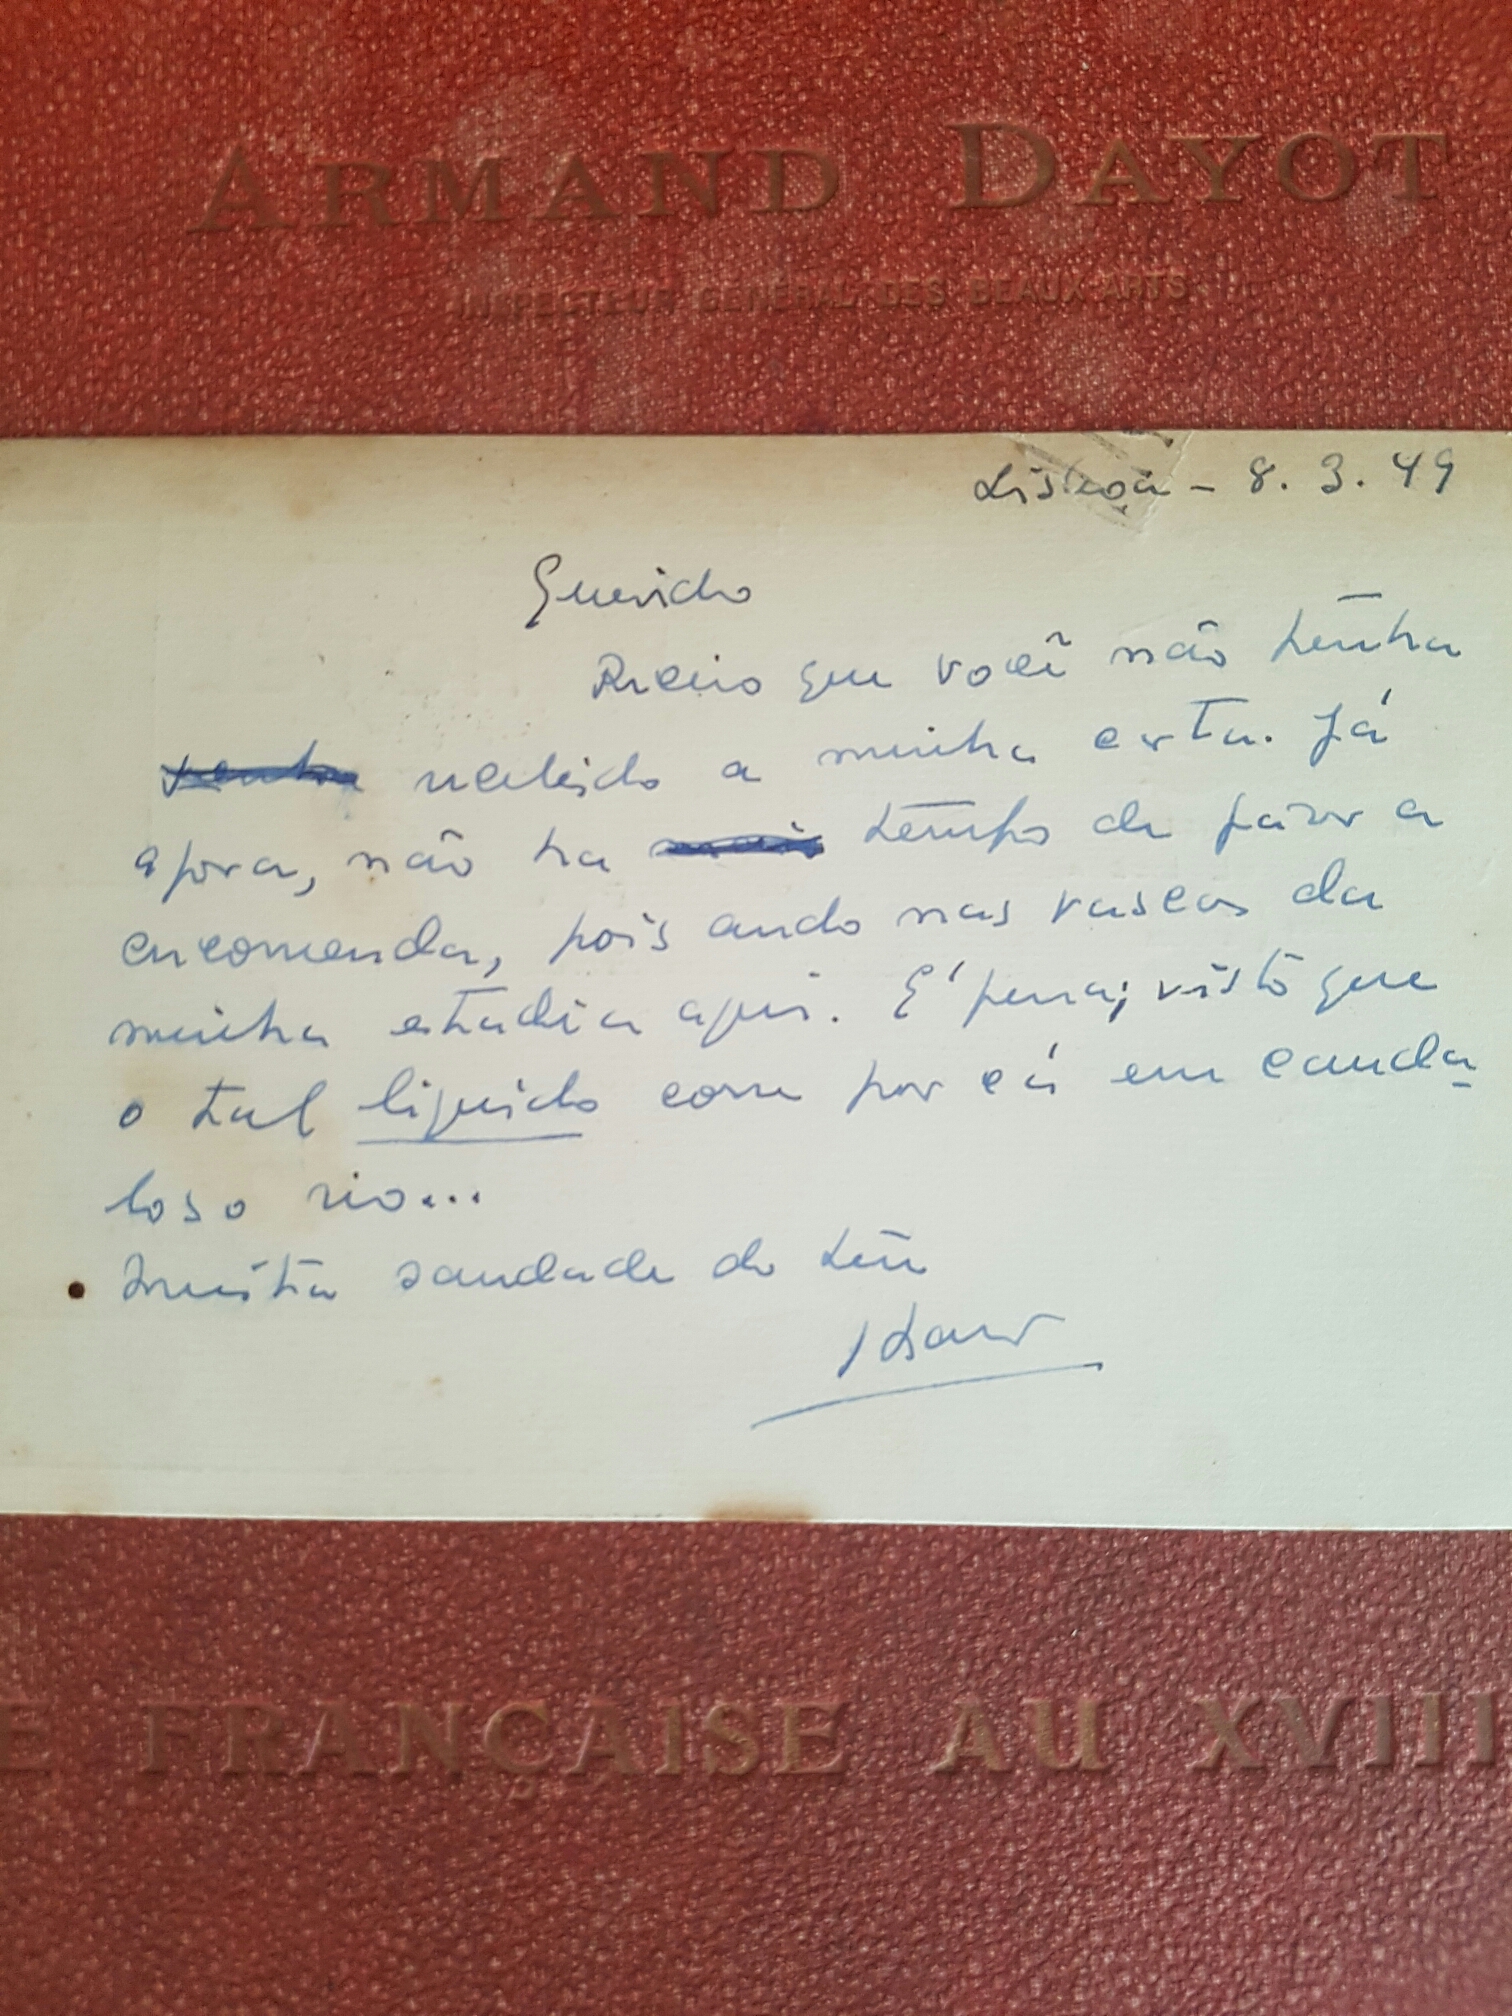 ARMAND DAYOT
INSPECTEUR GÉNÉRAL DES BEAUX-ARTS
Lisboa - 8. 3. 49
Querido
Receio que você não tenha
recebido a minha carta. Já
agora, não ha tempo de fazer a
encomenda, pois ando nas vascas da
minha estadia aqui. E' pena, visto que
o tal liquido corre por cá em cauda-
loso rio...
Muita saudade do teu
E FRANÇAISE AU XVIII